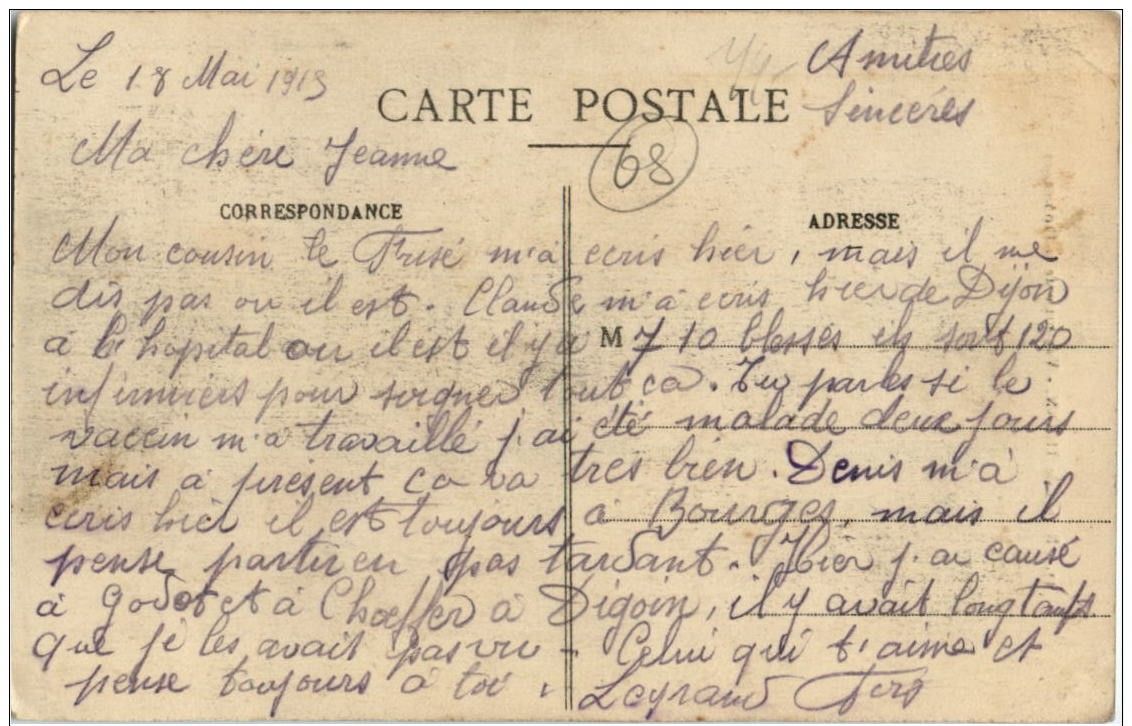 Le 18 Mai 1915
Amities
Sincéres
CARTE POSTALE
68
Ma chère Jeanne
CORRESPONDANCE
ADRESSE
Mon cousin le Frisé m'a ecris hier, mais il me
dis pas ou il est. Claude m'a ecris hier de Dijon
à l'hopital ou il est il y a 710 blessés ils sont 120
M
infirmiers pour soigner tout ca. Tu parles si le
vaccin m'a travaillé j'ai été malade deux jours
mais à présent ca va tres bien. Denis m'à
ecris hier il est toujours à Bourges, mais il
pense partir en pas tardant. Hier j'ai causé
à Godot et à Chœffer à Digoin, il y avait longtamps
que je les avait pas vu - Celui qui t'aime et
pense toujours à toi. Leyraud